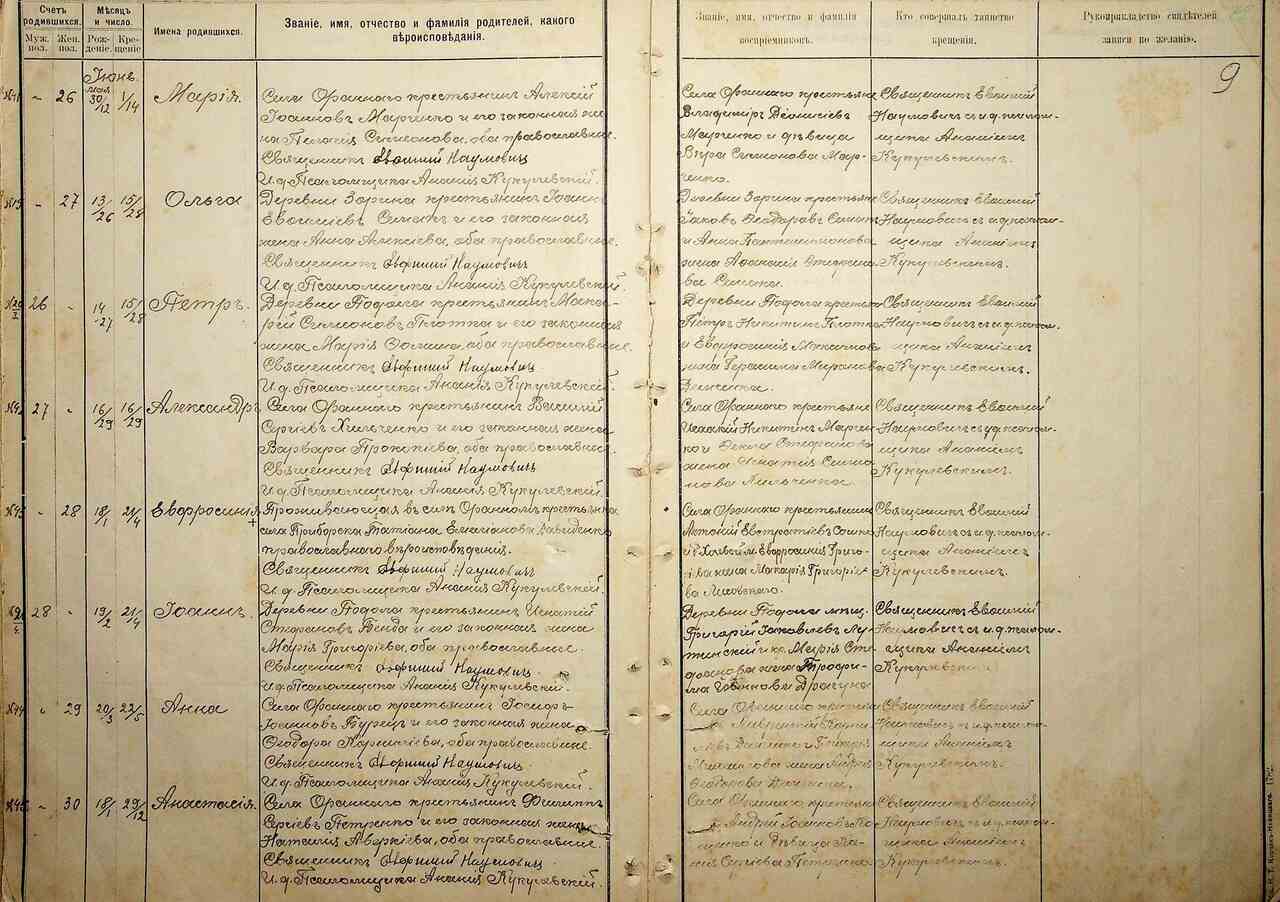 Счетъ родившихся.
Мѣсяцъ и число.
Имена родившихся.
Званіе, имя, отчество и фамилія родителей, какого вѣроисповѣданія.
Муж. пол.
Жен. пол.
Рож- деніе.
Кре- щеніе
Званіе, имя, отчество и фамилія воспріемниковъ.
Кто совершалъ таинство крещенія.
Рукоприкладство свидѣтелей записи по желанію.
9
Іюнь
26
мая 30/12
1/14
Марія.
Села Оранного крестьянинъ Алексій
Іоанновъ Марченко и его законная же-
на Пелагія Симеонова, оба православные.
Священникъ Евѳимій Наумовичъ
И. д. Псаломщика Ананія Кукулевскій.
Села Оранного крестьян
Владиміръ Діонисіевъ
Марченко и дѣвица
Вѣра Симеонова Мар-
ченко.
Священникъ Евѳимій
Наумовичъ съ и. д. псалом-
щика Ананіемъ
Кукулевскимъ.
27
13/26
15/28
Ольга
Деревни Зорина крестьянинъ Іоаннъ
Евѳиміевъ и его законная
жена Анна Алексіева, оба православные.
Священникъ Евѳимій Наумовичъ
И. д. Псаломщика Ананія Кукулевскій.
Деревни Зорина крестьян
Іаковъ Ѳеодоровъ
и Анна Пантелеимонова
жена Аѳанасія
Священникъ Евѳимій
Наумовичъ съ и. д. псалом-
щика Ананіемъ
Кукулевскимъ.
26
14/27
15/28
Петръ.
Деревни Подола крестьянинъ Мака-
рій Симеоновъ и его законная
жена Марія Ѳомина, оба православные.
Священникъ Евѳимій Наумовичъ
И. д. Псаломщика Ананія Кукулевскій.
Деревни Подола крестьян
Петръ Никитинъ
и Евфросинія
жена Герасима Миронова
Священникъ Евѳимій
Наумовичъ съ и. д. псалом-
щика Ананіемъ
Кукулевскимъ.
27
16/29
16/29
Александръ
Села Оранного крестьянинъ Василій
Сергіевъ Хильченко и его законная жена
Варвара Прокопіева, оба православные.
Священникъ Евѳимій Наумовичъ
И. д. Псаломщика Ананія Кукулевскій.
Села Оранного крестьян
Никитинъ Марчен-
ко и Ѳекла Стефанова
жена Игнатія
Священникъ Евѳимій
Наумовичъ съ и. д. псалом-
щика Ананіемъ
Кукулевскимъ.
28
18/1
21/4
Евфросинія
Проживающая въ селѣ Оранномъ крестьянка
села Приборска Татіана Емиліанова Давиденко
православнаго вѣроисповѣданія.
Священникъ Евѳимій Наумовичъ
И. д. Псаломщика Ананія Кукулевскій.
Села Оранного крестьянинъ
Антоній Евстратіевъ
Евфросинія Григо-
ріева жена Макарія Григоріе-
ва Лисовскаго.
Священникъ Евѳимій
Наумовичъ съ и. д. псалом-
щика Ананіемъ
Кукулевскимъ.
28
19/2
21/4
Іоаннъ.
Деревни Подола крестьянинъ Игнатій
Стефановъ Бенда и его законная жена
Марія Григоріева, оба православные.
Священникъ Евѳимій Наумовичъ.
И. д. Псаломщика Ананія Кукулевскій.
Деревни Подола мѣщ.
Григорій Іаковлевъ Лу-
тинскій и кр. Марія Сте-
фанова жена Трофи-
ма Драгуна
Священникъ Евѳимій
Наумовичъ съ и. д. псалом-
щика Ананіемъ
Кукулевскимъ
29
20/3
22/5
Анна
Села Оранного крестьянинъ Іосифъ
Іоанновъ Бурецъ и его законная жена
Ѳеодора Корниліева, оба православные.
Священникъ Евѳимій Наумовичъ.
И. д. Псаломщика Ананія Кукулевскій.
Села Оранного крестьян
Священникъ Евѳимій
Наумовичъ съ и. д. псалом-
щика Ананіемъ
Кукулевскимъ.
30
18/1
29/12
Анастасія.
Села Оранного крестьянинъ Филиппъ
Сергіевъ Петренко и его законная жена
Наталія Аверкіева, оба православные.
Священникъ Евѳимій Наумовичъ
И. д. Псаломщика Ананія Кукулевскій.
Села Оранного крестьян
Андрей Іоанновъ
и дѣвица
Сергіева Петренко
Священникъ Евѳимій
Наумовичъ съ и. д. псалом-
щика Ананіемъ
Кукулевскимъ.